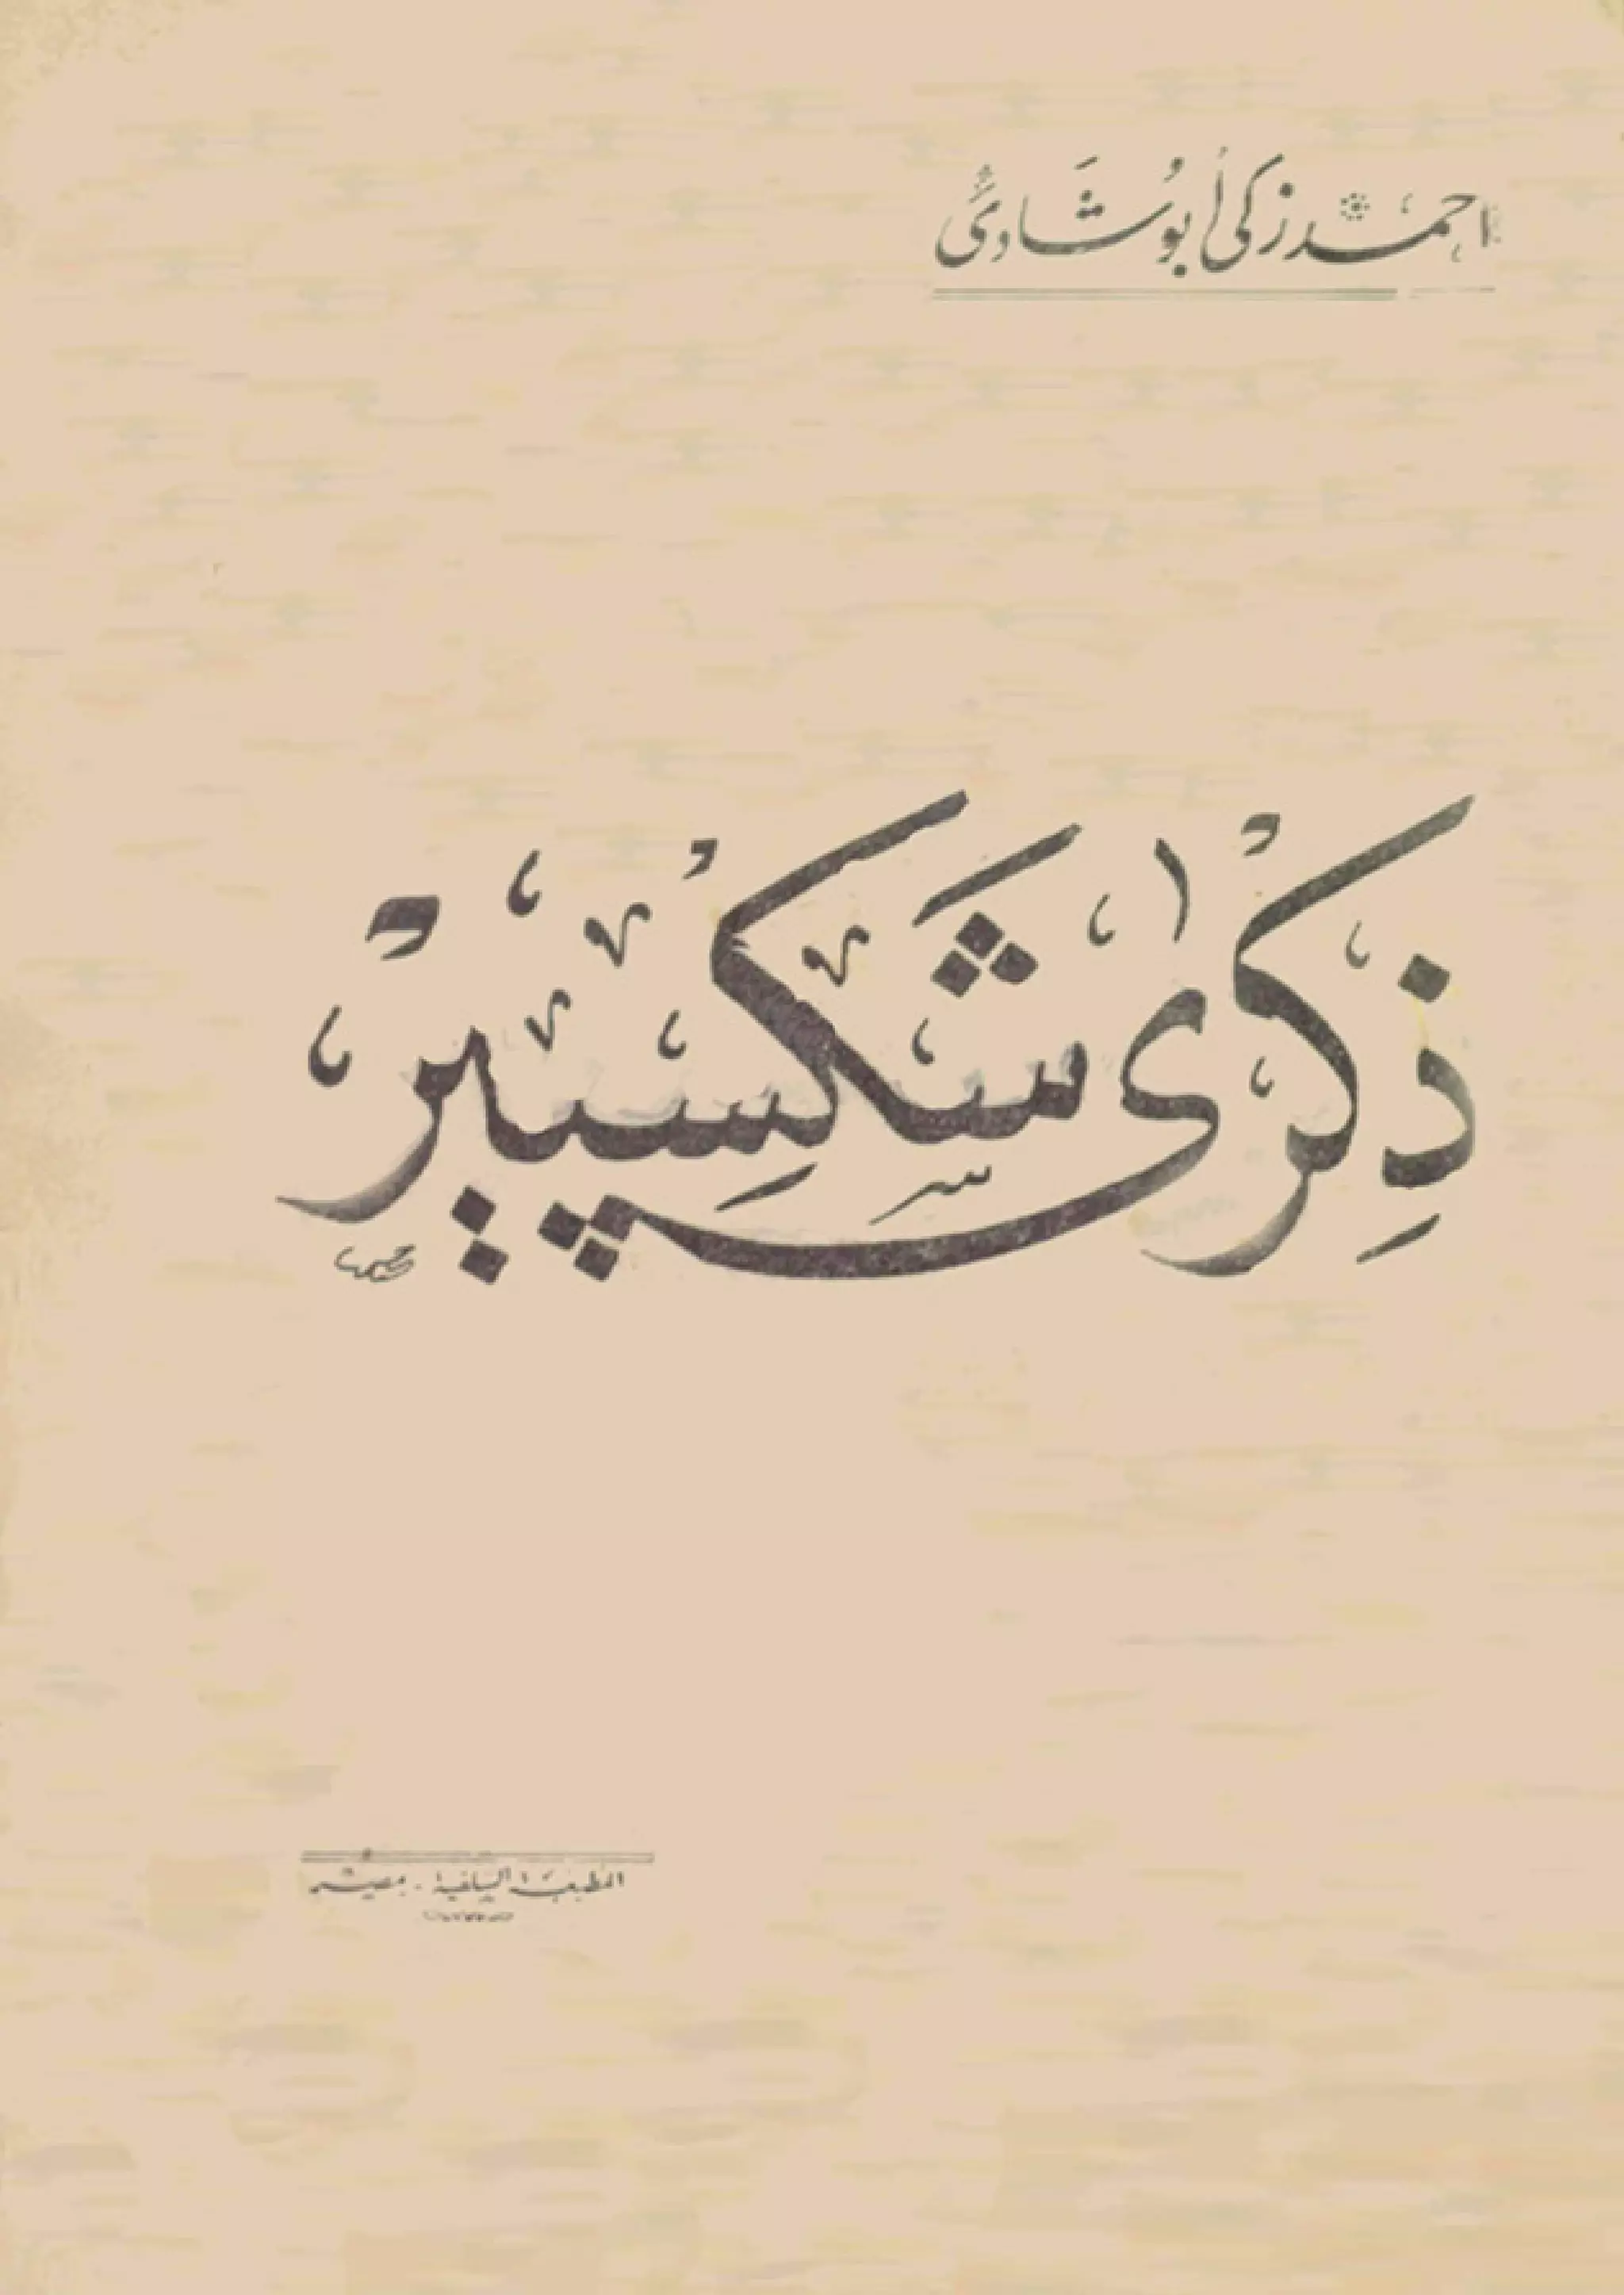 احمد زكي أبو شادي
ذِكرَى شَكِسْبِيرْ
المطبعة السلفية - بمصر